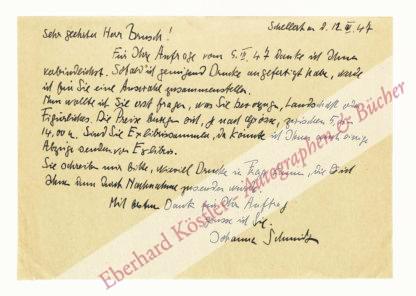 Sehr geehrter Herr Brusch!
Schellert, d. 12. III. 47
Für Ihre Anfrage vom 5. III. 47 danke ich Ihnen
verbindlichst. Sobald ich genügend Drucke angefertigt habe, werde
ich für Sie eine Auswahl zusammenstellen.
Nun wollte ich Sie erst fragen, was Sie bevorzugen, Landschaft oder
Figürliches. Die Preise bewegen sich, je nach Grösse, zwischen 5,00 -
14,00 M. Sind Sie Exlibrissammler, so könnte ich Ihnen auch einige
Abzüge senden von Exlibris.
Sie schreiben mir bitte, wieviel Drucke in Frage kommen, die ich
Ihnen dann durch Nachnahme zusenden würde.
Mit bestem Dank für Ihren Auftrag
grüsse ich Sie.
Johanna Schmidt
Eberhard Köstler Autographen & Bücher